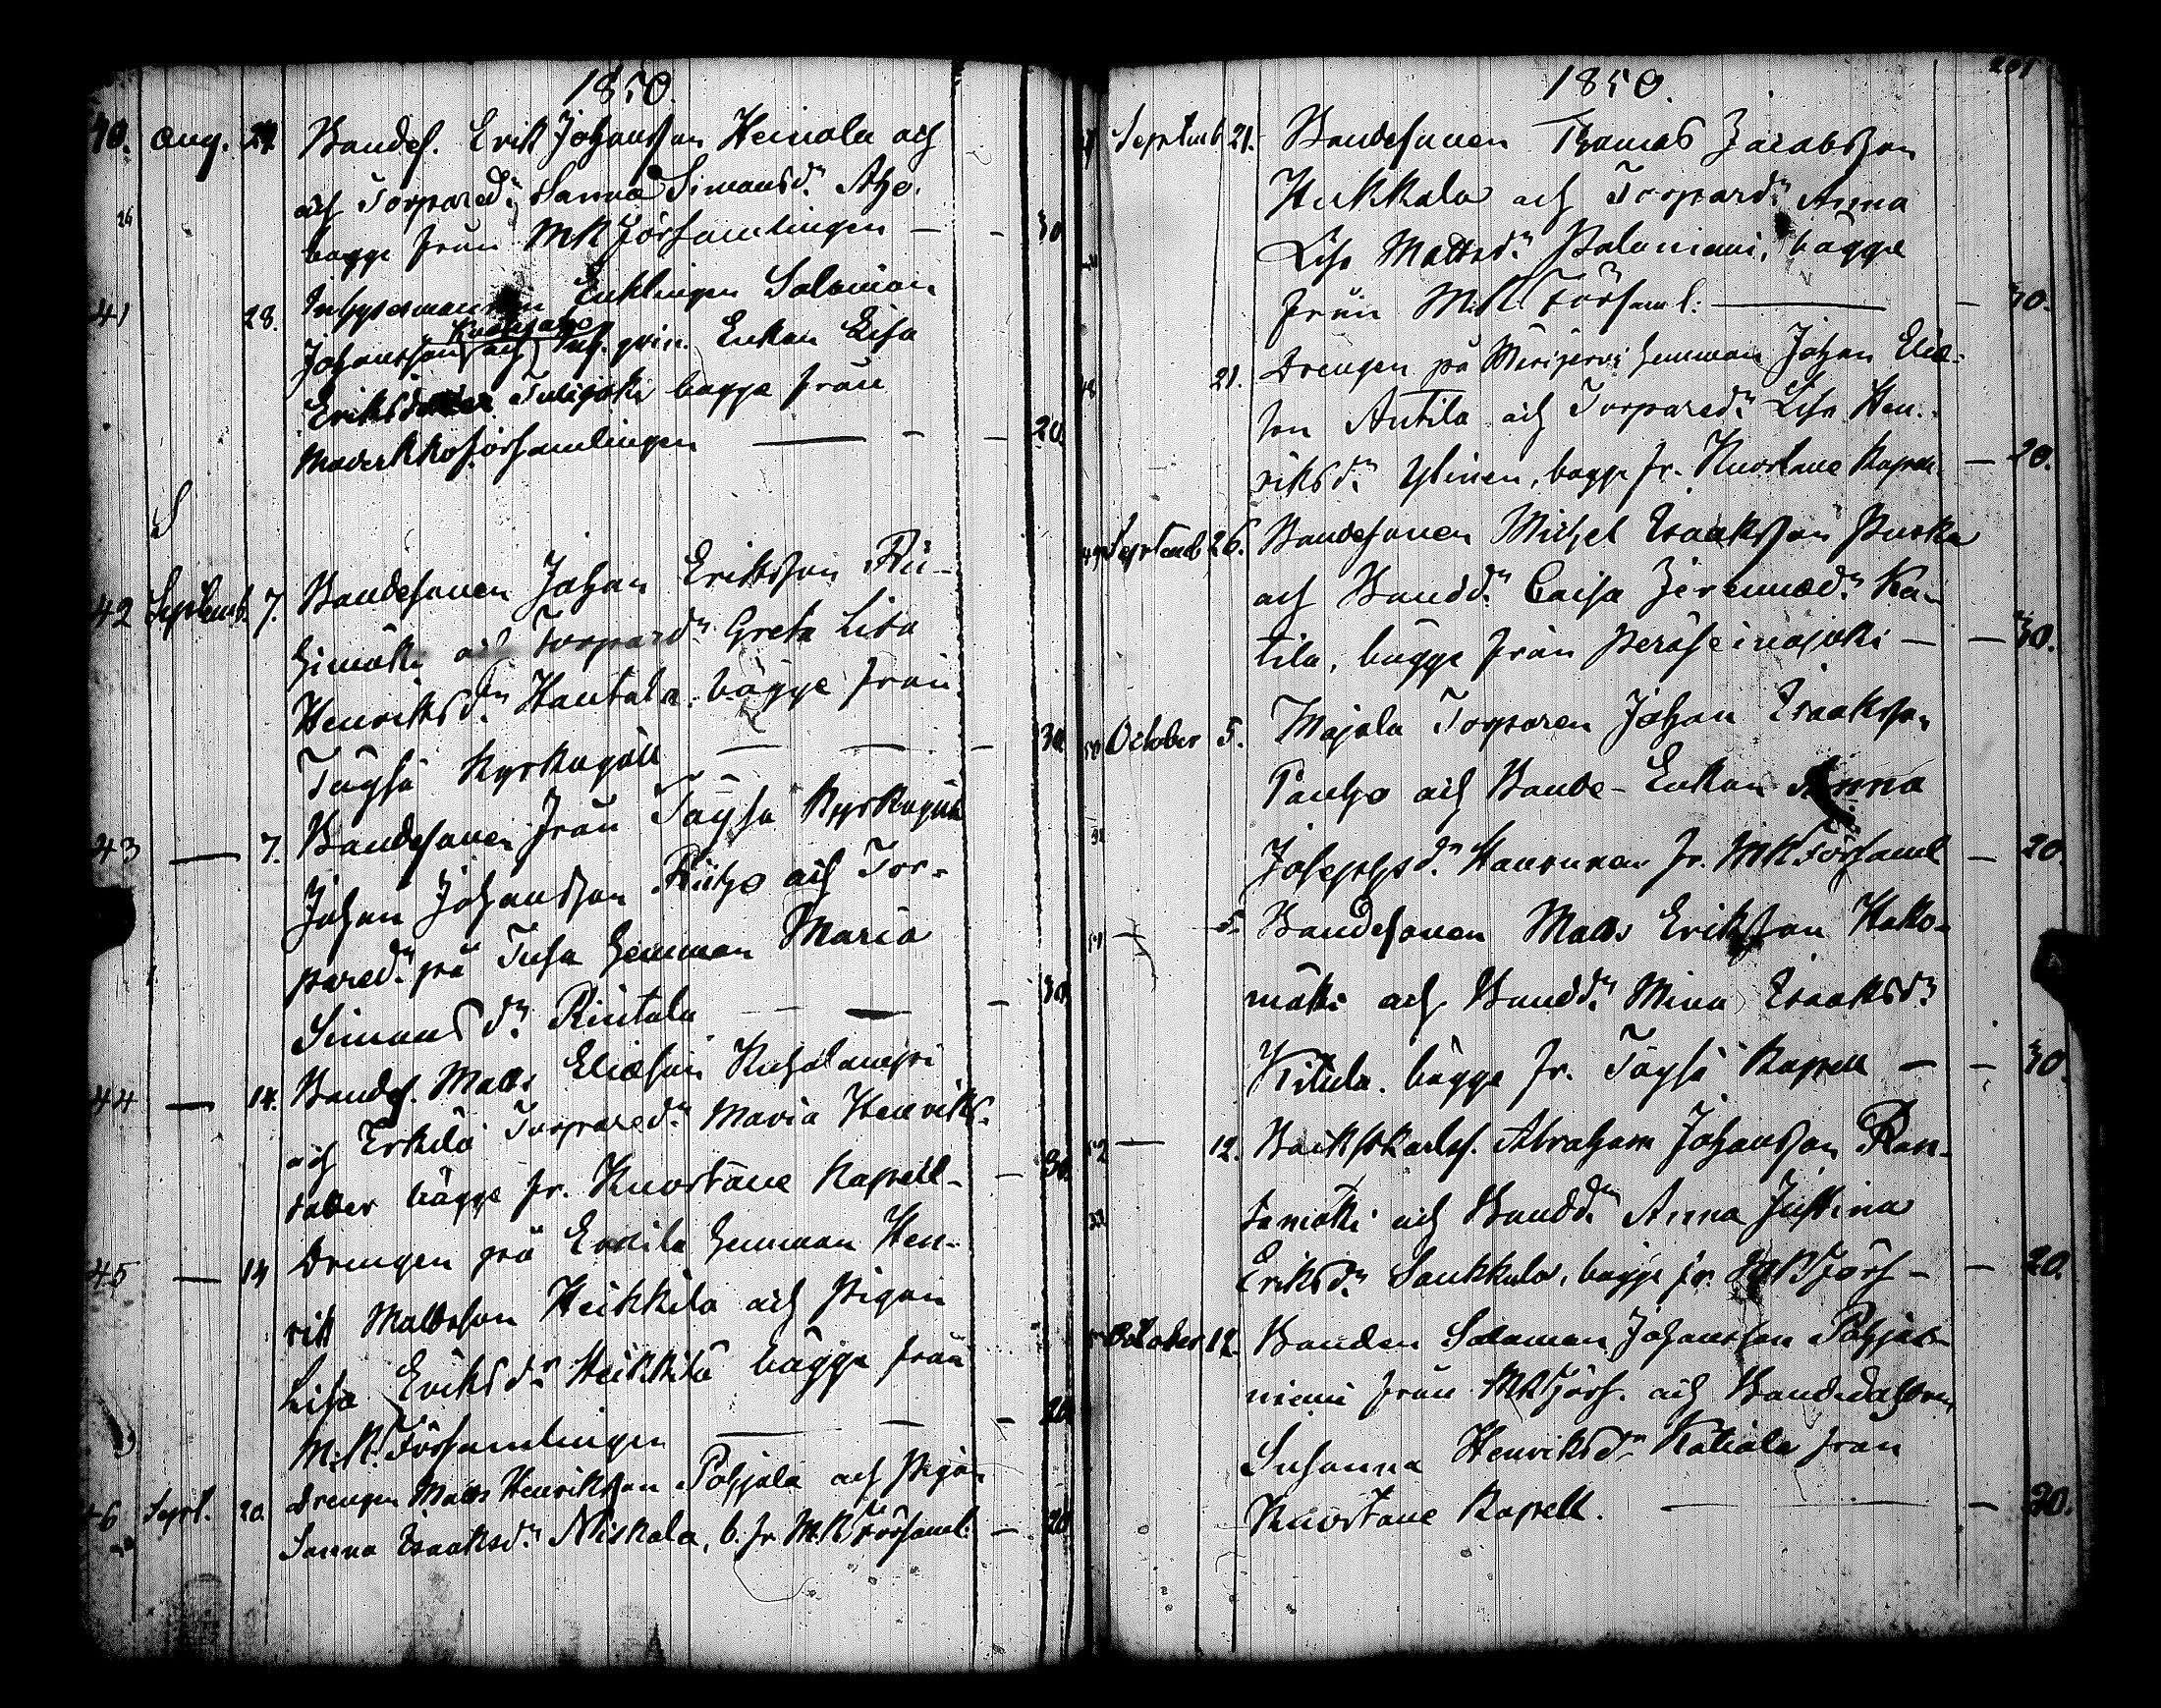 1850.
40. Aug. 24. Bondes. Erik Johansson Heinola och
och Torpared:n Sanna Simonsd:n Aho.
26
bägge från MK Församlingen — - 30
41 28. Inhysesmannen Enklingen Salomon
Johansson och Inh. qvin. Enkan Lisa
Eriksdotter Tulijoki bägge från
Moderkkoförsamlingen — - - 20
S
42 Septemb. 7. Bondesonen Johan Eriksson Rii-
himäki och Torpard:n Greta Lisa
Henriksd:n Hautala bägge från
Töysä Kyrkogäll — — - 30
43 — 7. Bondesonen från Töysä Kyrkogäll
Johan Johansson Riiho och Tor-
pared:n på Tusa hemman Maria
Simonsd:n Rintala — — - 30
44 — 14. Bondes. Matts Eliæson Kuhalampi
och Erkilä Torpared:n Maria Henriks-
dotter bägge fr. Kuortane Kapell - — 30.
45 — 14 Drengen på Erkilä hemman Hen-
rik Mattsson Heikkilä och Pigan
Lisa Eriksd:r Heikkilä bägge från
M.K. Församlingen — — - 20
46 Sept. 20. Drengen Matts Henriksson Pohjala och Pigan
Sanna Isaaksd:n Niskala, b. fr M.K Församl. — 20
1850. 201
47 Septemb 21. Bondesonen Thomas Jacobsson
Hukkala och Torpard:n Anna
Lisa Mattsd:n Paloniemi, bägge
från M.K. Församl: — — 30.
48 21. Drengen på Meripervi hemman Johan Eliæ-
son Antila och Torpared:n Lisa Hen-
riksd:n Ylinen, bägge fr. Kuortane Kapell — 20.
49 Septemb 26. Bondesonen Michel Isaaksson Puska
och Bondd:n Caisa Jeremiæd:n Ka-
tila, bägge från Peräseinäjoki — — 30.
50 October 5. Majala Torparen Johan Isaaksson
Panho och Bonde-Enkan Anna
Josephsd:n Haurunen fr. MK Församl — 20.
51 — 5. Bondesonen Matts Eriksson Hako-
mäki och Bondd:n Mina Isaaksd:n
Kitula. bägge fr. Töysä Kapell — — 30.
52 — 12. Backstkarlss. Abraham Johansson Ran-
tamäki och Bondd:n Anna Justina
Eriksd:n Saukkola, bägge fr. MK Förs — — 20.
53 October 12. Bonden Salomon Johansson Pohjas-
niemi från MK Förs. och Bondedottren
Susanna Henriksd:n Kätiälä från
Kuortane Kapell. — — 30.